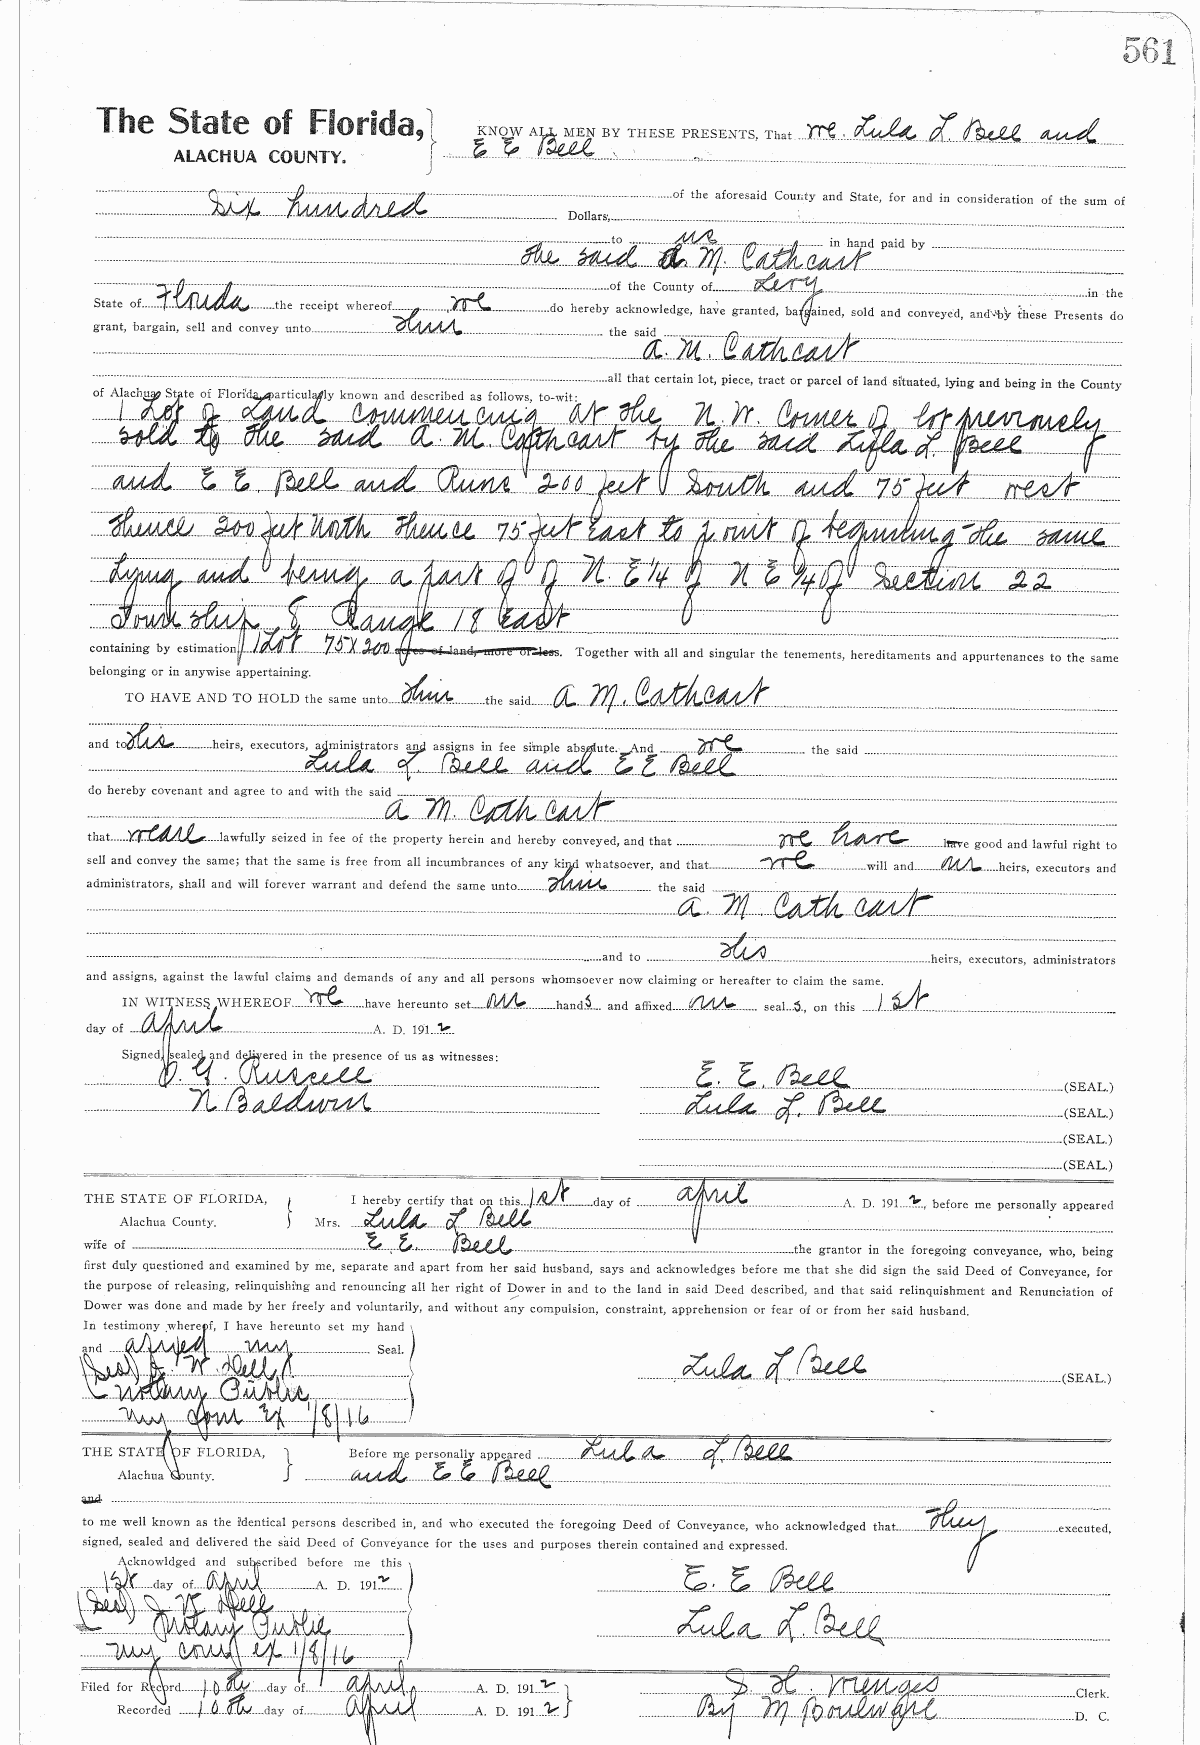 561
The State of Florida,
ALACHUA COUNTY.
KNOW ALL MEN BY THESE PRESENTS, That we. Lula L. Bell and
E E Bell
of the aforesaid County and State, for and in consideration of the sum of
Six hundred Dollars,
to us in hand paid by
the said A. M. Cathcart
of the County of Levy in the
State of Florida the receipt whereof we do hereby acknowledge, have granted, bargained, sold and conveyed, and by these Presents do
grant, bargain, sell and convey unto him the said
A. M. Cathcart
all that certain lot, piece, tract or parcel of land situated, lying and being in the County
of Alachua State of Florida, particularly known and described as follows, to-wit:
1 Lot of Land commencing at the N.W. Corner of lot previously
sold to the said A. M. Cathcart by the said Lula L. Bell
and E E. Bell and Runs 200 feet South and 75 feet west
thence 200 feet North thence 75 feet East to point of beginning the same
Lying and being a part of of N. E 1/4 of N E 1/4 of Section 22
Township 8 Range 18 East
containing by estimation 1 Lot 75 x 200 acres of land, more or less. Together with all and singular the tenements, hereditaments and appurtenances to the same
belonging or in anywise appertaining.
TO HAVE AND TO HOLD the same unto him the said A. M. Cathcart
and to his heirs, executors, administrators and assigns in fee simple absolute. And we the said
Lula L Bell and E E Bell
do hereby covenant and agree to and with the said
A M. Cathcart
that we are lawfully seized in fee of the property herein and hereby conveyed, and that we have have good and lawful right to
sell and convey the same; that the same is free from all incumbrances of any kind whatsoever, and that we will and our heirs, executors and
administrators, shall and will forever warrant and defend the same unto him the said
A. M. Cathcart
and to his heirs, executors, administrators
and assigns, against the lawful claims and demands of any and all persons whomsoever now claiming or hereafter to claim the same.
IN WITNESS WHEREOF we have hereunto set our hands and affixed our seal s, on this 1st
day of April A. D. 1912
Signed, sealed and delivered in the presence of us as witnesses:
O. G. Russell E. E. Bell (SEAL.)
N Baldwin Lula L. Bell (SEAL.)
(SEAL.)
(SEAL.)
THE STATE OF FLORIDA, I hereby certify that on this 1st day of April A. D. 1912, before me personally appeared
Alachua County. Mrs. Lula L Bell
wife of E E. Bell the grantor in the foregoing conveyance, who, being
first duly questioned and examined by me, separate and apart from her said husband, says and acknowledges before me that she did sign the said Deed of Conveyance, for
the purpose of releasing, relinquishing and renouncing all her right of Dower in and to the land in said Deed described, and that said relinquishment and Renunciation of
Dower was done and made by her freely and voluntarily, and without any compulsion, constraint, apprehension or fear of or from her said husband.
In testimony whereof, I have hereunto set my hand
and afixed my Seal.
(Seal) J. W. Dell Lula L Bell (SEAL.)
Notary Public
My Com Ex 1/8/16
THE STATE OF FLORIDA, Before me personally appeared Lula L. Bell
Alachua County. and E E Bell
and
to me well known as the identical persons described in, and who executed the foregoing Deed of Conveyance, who acknowledged that they executed,
signed, sealed and delivered the said Deed of Conveyance for the uses and purposes therein contained and expressed.
Acknowldged and subscribed before me this
1st day of April A. D. 1912 E. E Bell
(Seal) J W Dell
Notary Public Lula L. Bell
My com ex 1/8/16
Filed for Record 10th day of April A. D. 1912 S. H. Wienges Clerk.
Recorded 10th day of April A. D. 1912 By M Boulware D. C.